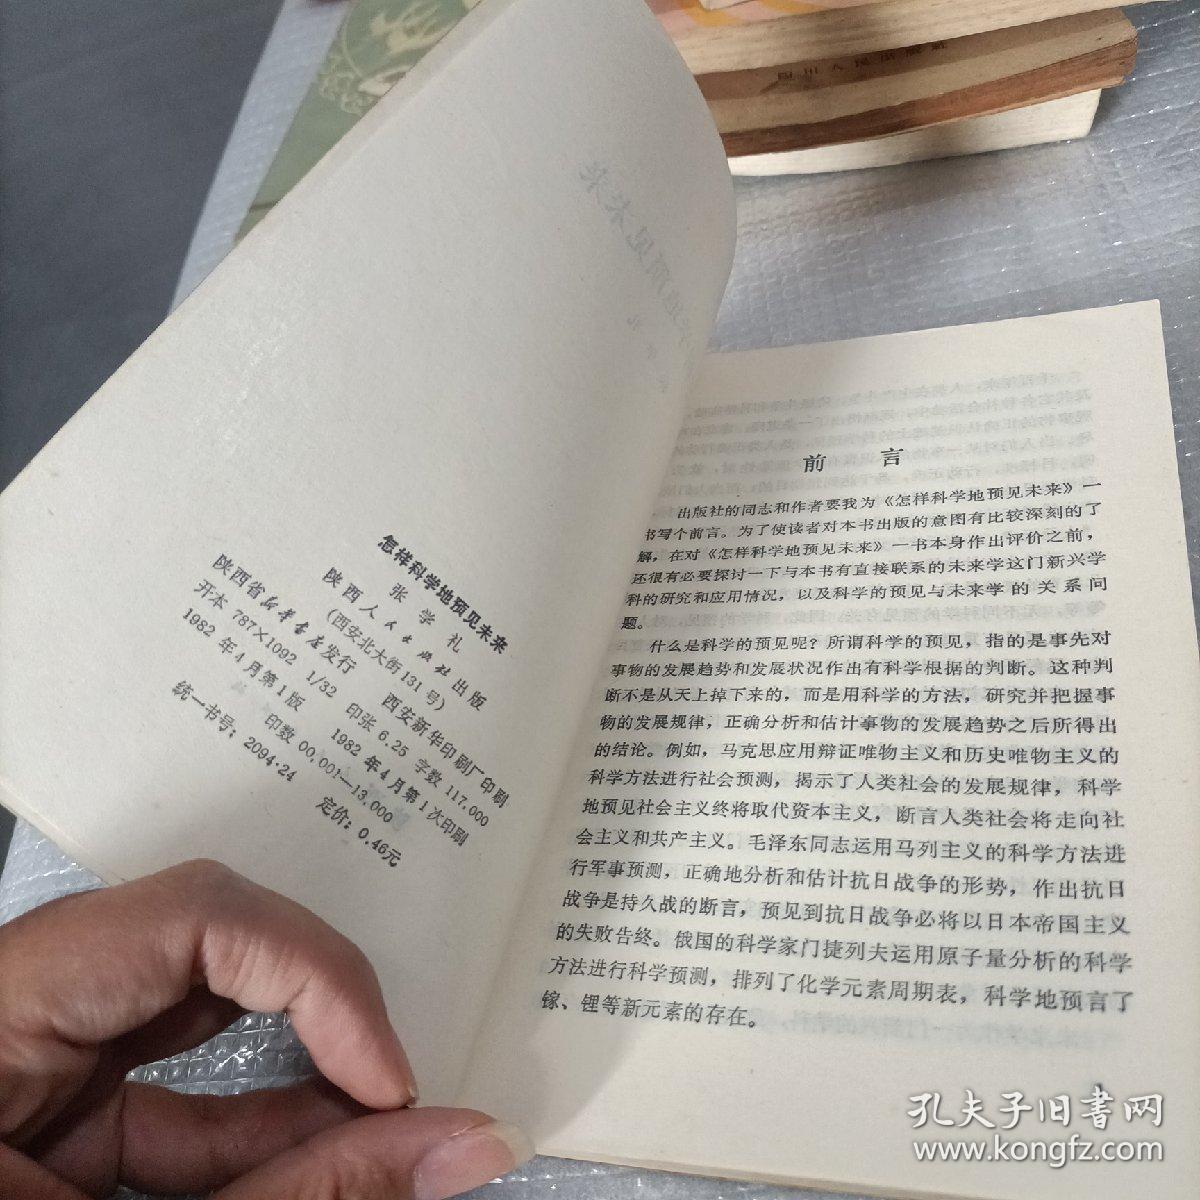 怎样科学地预见未来
张学礼
陕西人民出版社出版
(西安北大街131号)
陕西省新华书店发行 西安新华印刷厂印刷
开本 787×1092 1/32 印张 6.25 字数 117,000
1982年4月第1版 1982年4月第1次印刷
印数 00,001—13,000
统一书号：2094·24 定价：0.46元
前言
出版社的同志和作者要我为《怎样科学地预见未来》一
书写个前言。为了使读者对本书出版的意图有比较深刻的了
解，在对《怎样科学地预见未来》一书本身作出评价之前，
还很有必要探讨一下与本书有直接联系的未来学这门新兴学
科的研究和应用情况，以及科学的预见与未来学的关系问
题。
什么是科学的预见呢？所谓科学的预见，指的是事先对
事物的发展趋势和发展状况作出有科学根据的判断。这种判
断不是从天上掉下来的，而是用科学的方法，研究并把握事
物的发展规律，正确分析和估计事物的发展趋势之后所得出
的结论。例如，马克思应用辩证唯物主义和历史唯物主义的
科学方法进行社会预测，揭示了人类社会的发展规律，科学
地预见社会主义终将取代资本主义，断言人类社会将走向社
会主义和共产主义。毛泽东同志运用马列主义的科学方法进
行军事预测，正确地分析和估计抗日战争的形势，作出抗日
战争是持久战的断言，预见到抗日战争必将以日本帝国主义
的失败告终。俄国的科学家门捷列夫运用原子量分析的科学
方法进行科学预测，排列了化学元素周期表，科学地预言了
镓、锂等新元素的存在。
孔夫子旧书网
www.kongfz.com